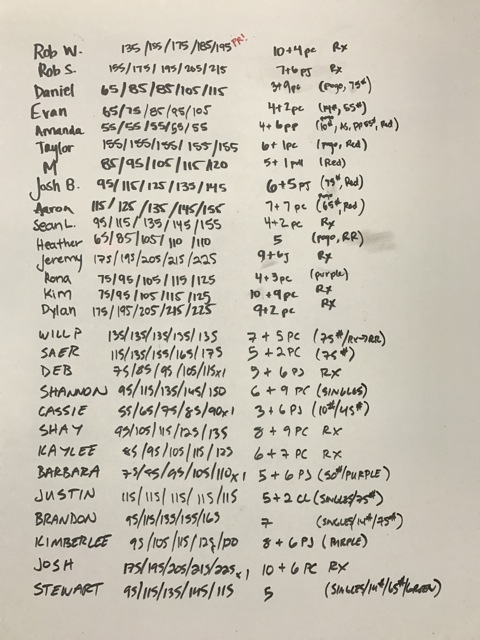 Rob W. 135/155/175/185/195 PR! 10+4pc Rx
Rob S. 155/175/195/205/215 7+6pj Rx
Daniel 65/85/85/105/115 3+9pc (pogo, 75#)
Evan 65/75/85/95/105 4+2pc (55#)
Amanda 55/55/55/55/55 4+6pp (10#, Red)
Taylor 155/155/155/155/155 6+1pc (pogo, Red)
M 85/95/105/115/120 5+1 pull (Red)
Josh B. 95/115/125/135/145 6+5pj (75#, Red)
Aaron 115/125/135/145/155 7+7pc (pogo 65#, Red)
Sean L. 95/115/135/145/155 4+2pc Rx
Heather 65/85/105/110/110 5 (pogo, RR)
Jeremy 175/195/205/215/225 9+6j Rx
Rona 75/95/105/115/125 4+3pc (purple)
Kim 75/95/105/115/125 10+9pc Rx
Dylan 175/195/205/215/225 9+2pc Rx
WILL P 135/135/135/135/135 7+5PC (75#/RX→RR)
SAER 115/135/155/165/175 5+2PC (75#)
DEB 75/85/95/105/115x1 5+6PJ RX
SHANNON 95/115/135/145/150 6+9PC (SINGLES)
CASSIE 55/65/75/85/90x1 3+6PJ (10#/45#)
SHAY 95/105/115/125/135 8+9PC RX
KAYLEE 85/95/105/115/125 6+7PC RX
BARBARA 75/85/95/105/110x1 5+6PJ (50#/PURPLE)
JUSTIN 115/115/115/115/115 5+2CL (SINGLES/75#)
BRANDON 95/115/135/155/165 7 (SINGLES/14#/75#)
KIMBERLEE 95/105/115/125/130 8+6PJ (PURPLE)
JOSH 175/195/205/215/225x1 10+6PC RX
STEWART 95/115/135/145/115 5 (SINGLES/14#/65#/GREEN)